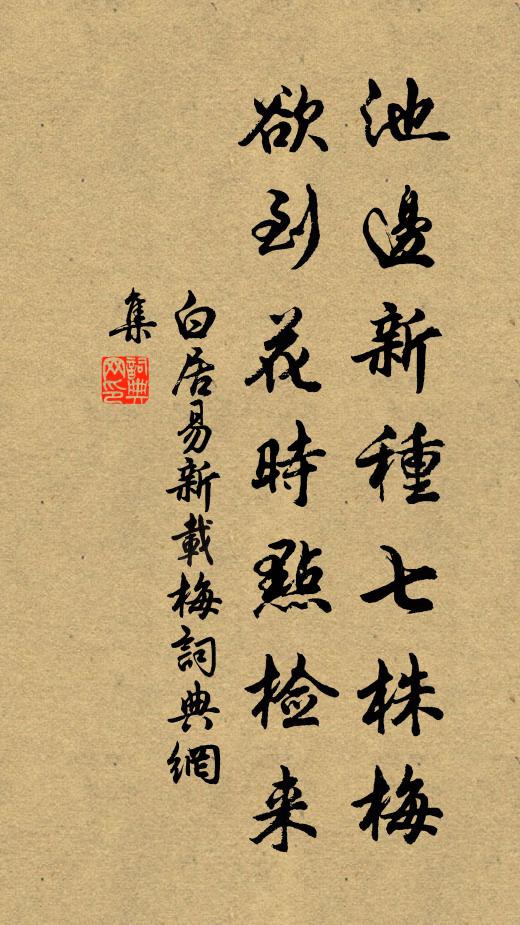 池邊新種七株梅
欲到花時點检来
白居易新載梅詞典網
集
詞典
网印